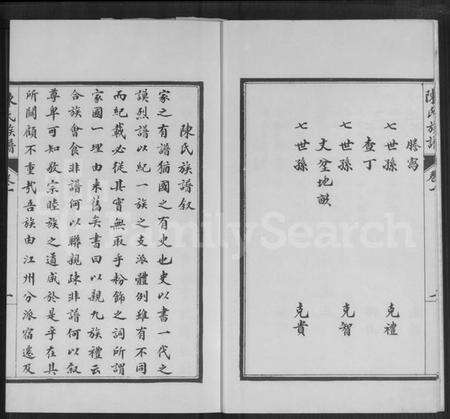 陳氏族譜
卷
一
謄寫
七世孫 克禮
查丁
七世孫 克智
丈塋地畝
七世孫 克貴
陳氏族譜叙
家之有譜猶國之有史也史以書一代之
謨烈譜以紀一族之支派體例雖有不同
而紀載必從其實無取乎粉飾之詞所謂
家國一理由來舊矣書曰以親九族禮云
合族會食非譜何以聯親疎非譜何以叙
尊卑可知敦宗睦族之道咸於是乎在其
所關顧不重哉吾族由江州分派宿遷及
陳氏族譜
卷一
一
FamilySearch